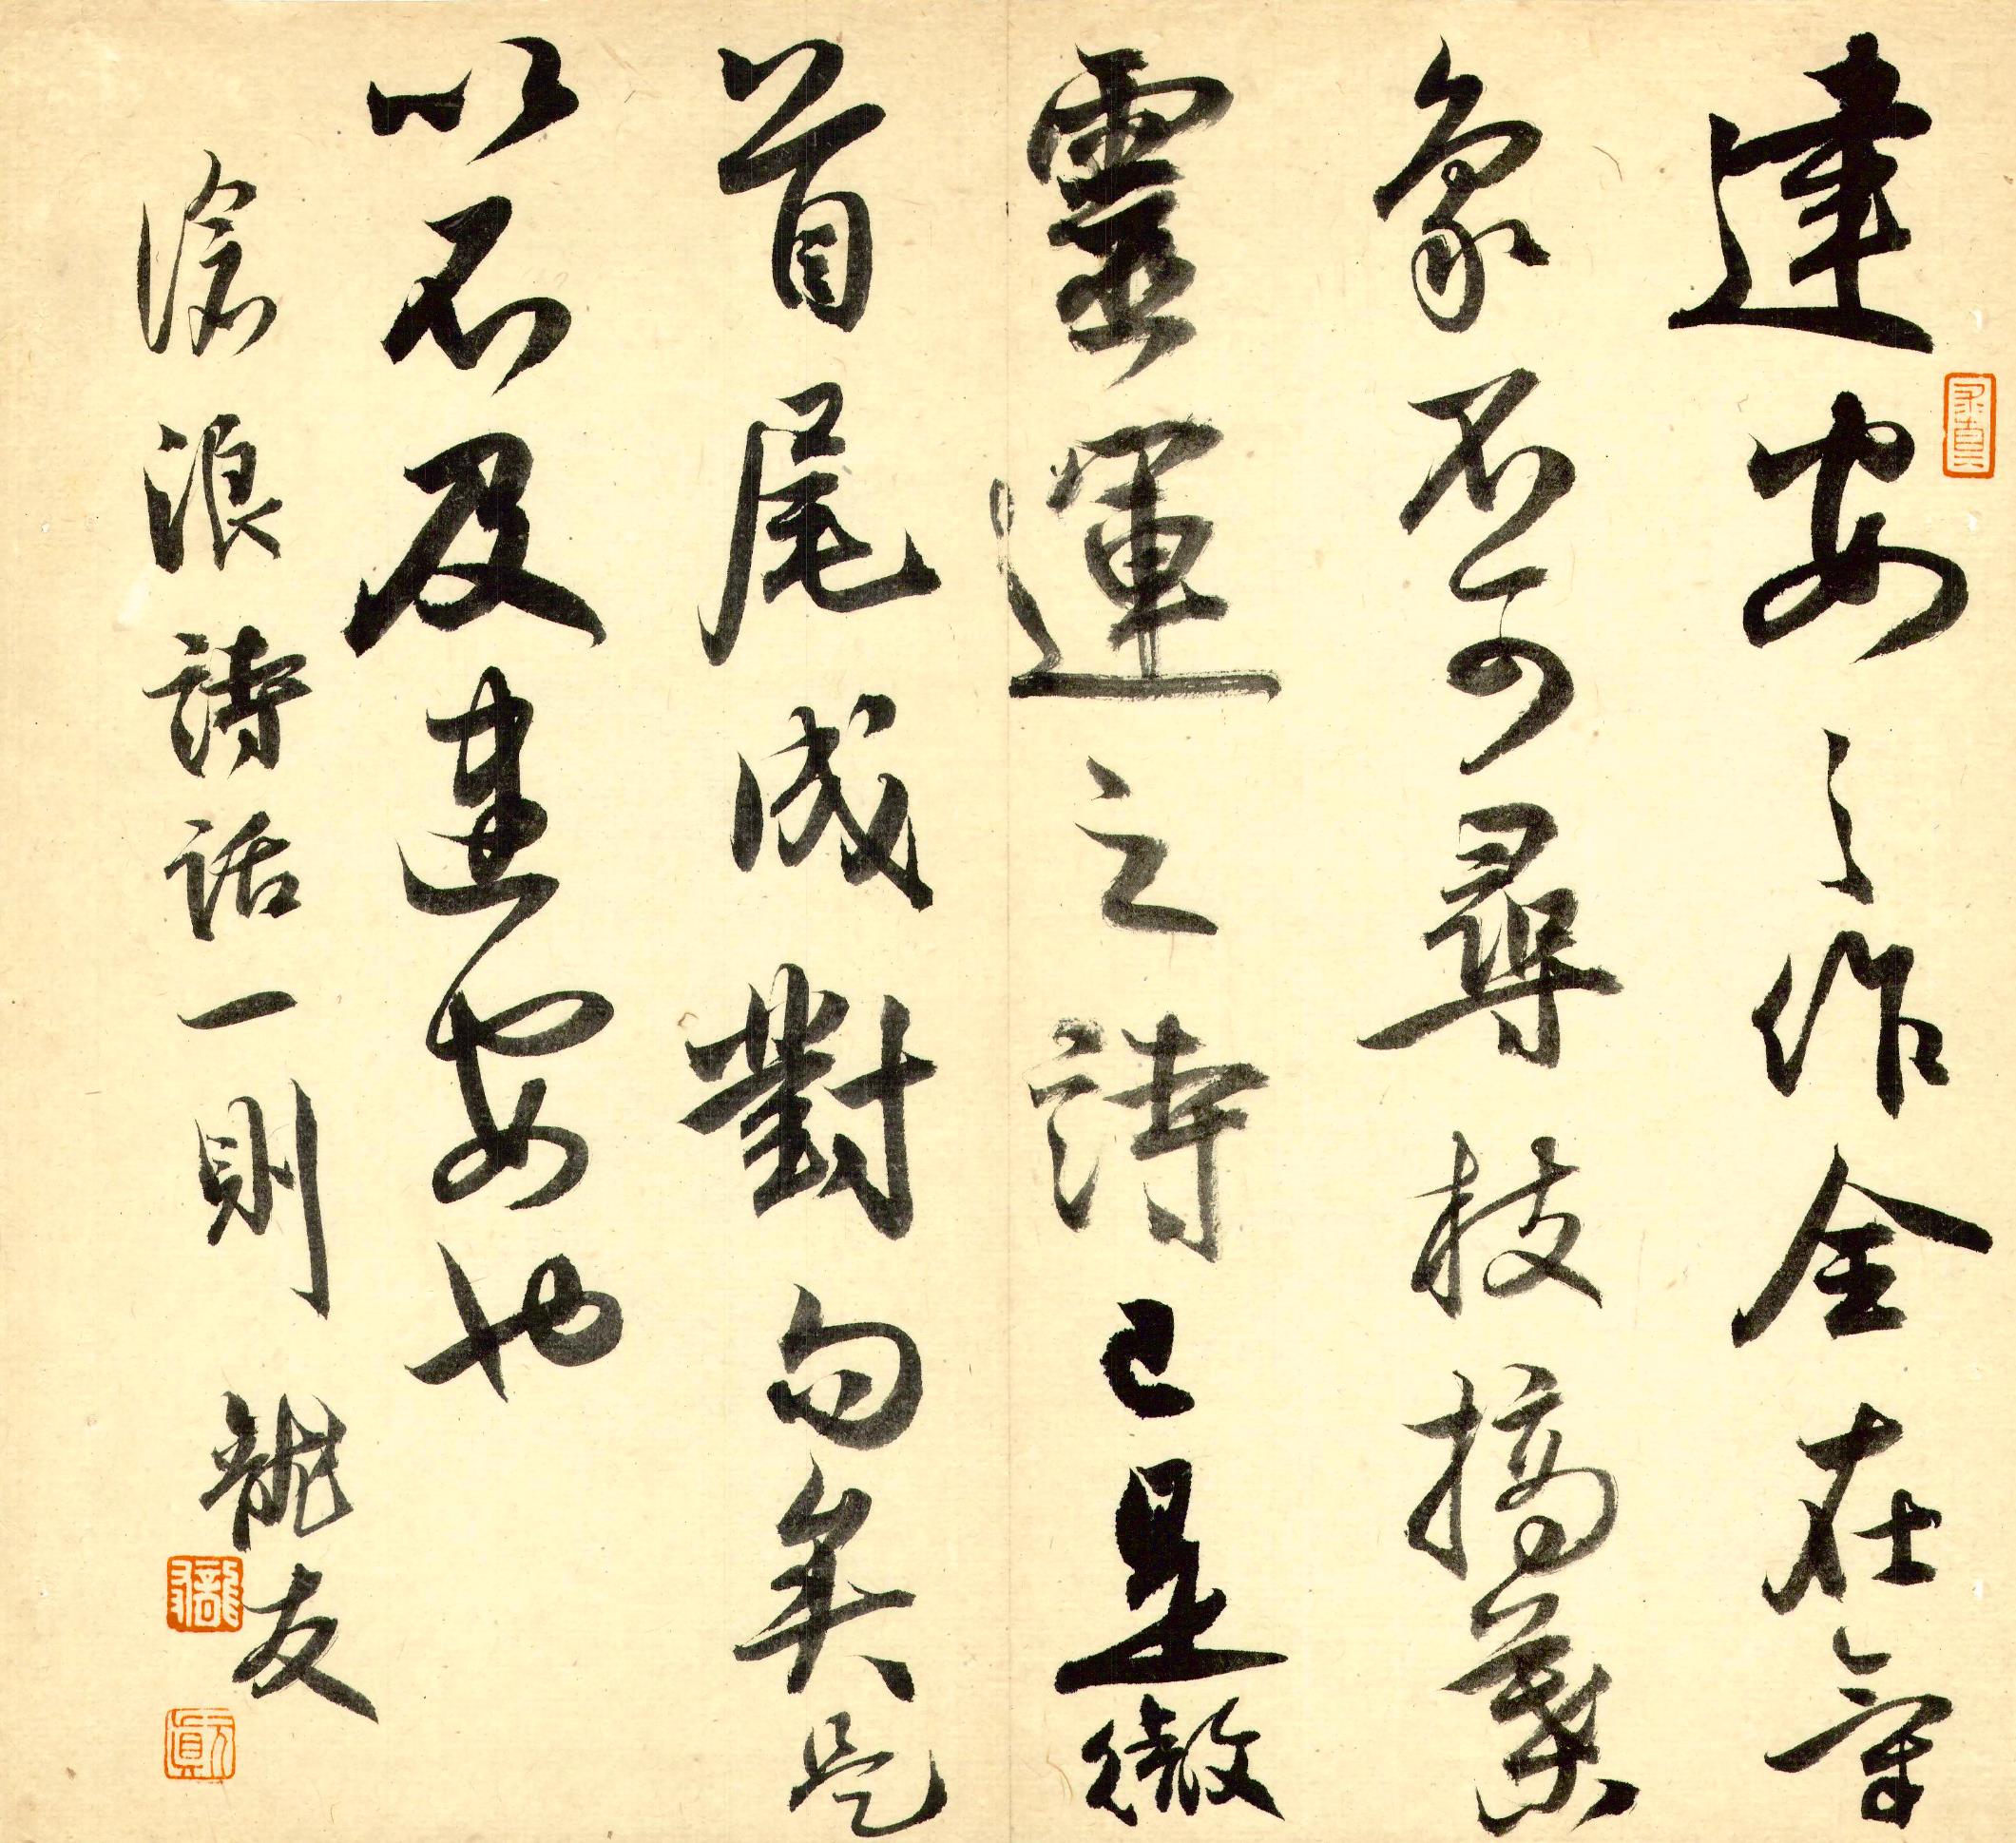 建安之作全在氣
象不可尋枝摘葉
靈運之詩已是徹
首尾成對句矣是
以不及建安也
滄浪詩話一則 龍友
龍友